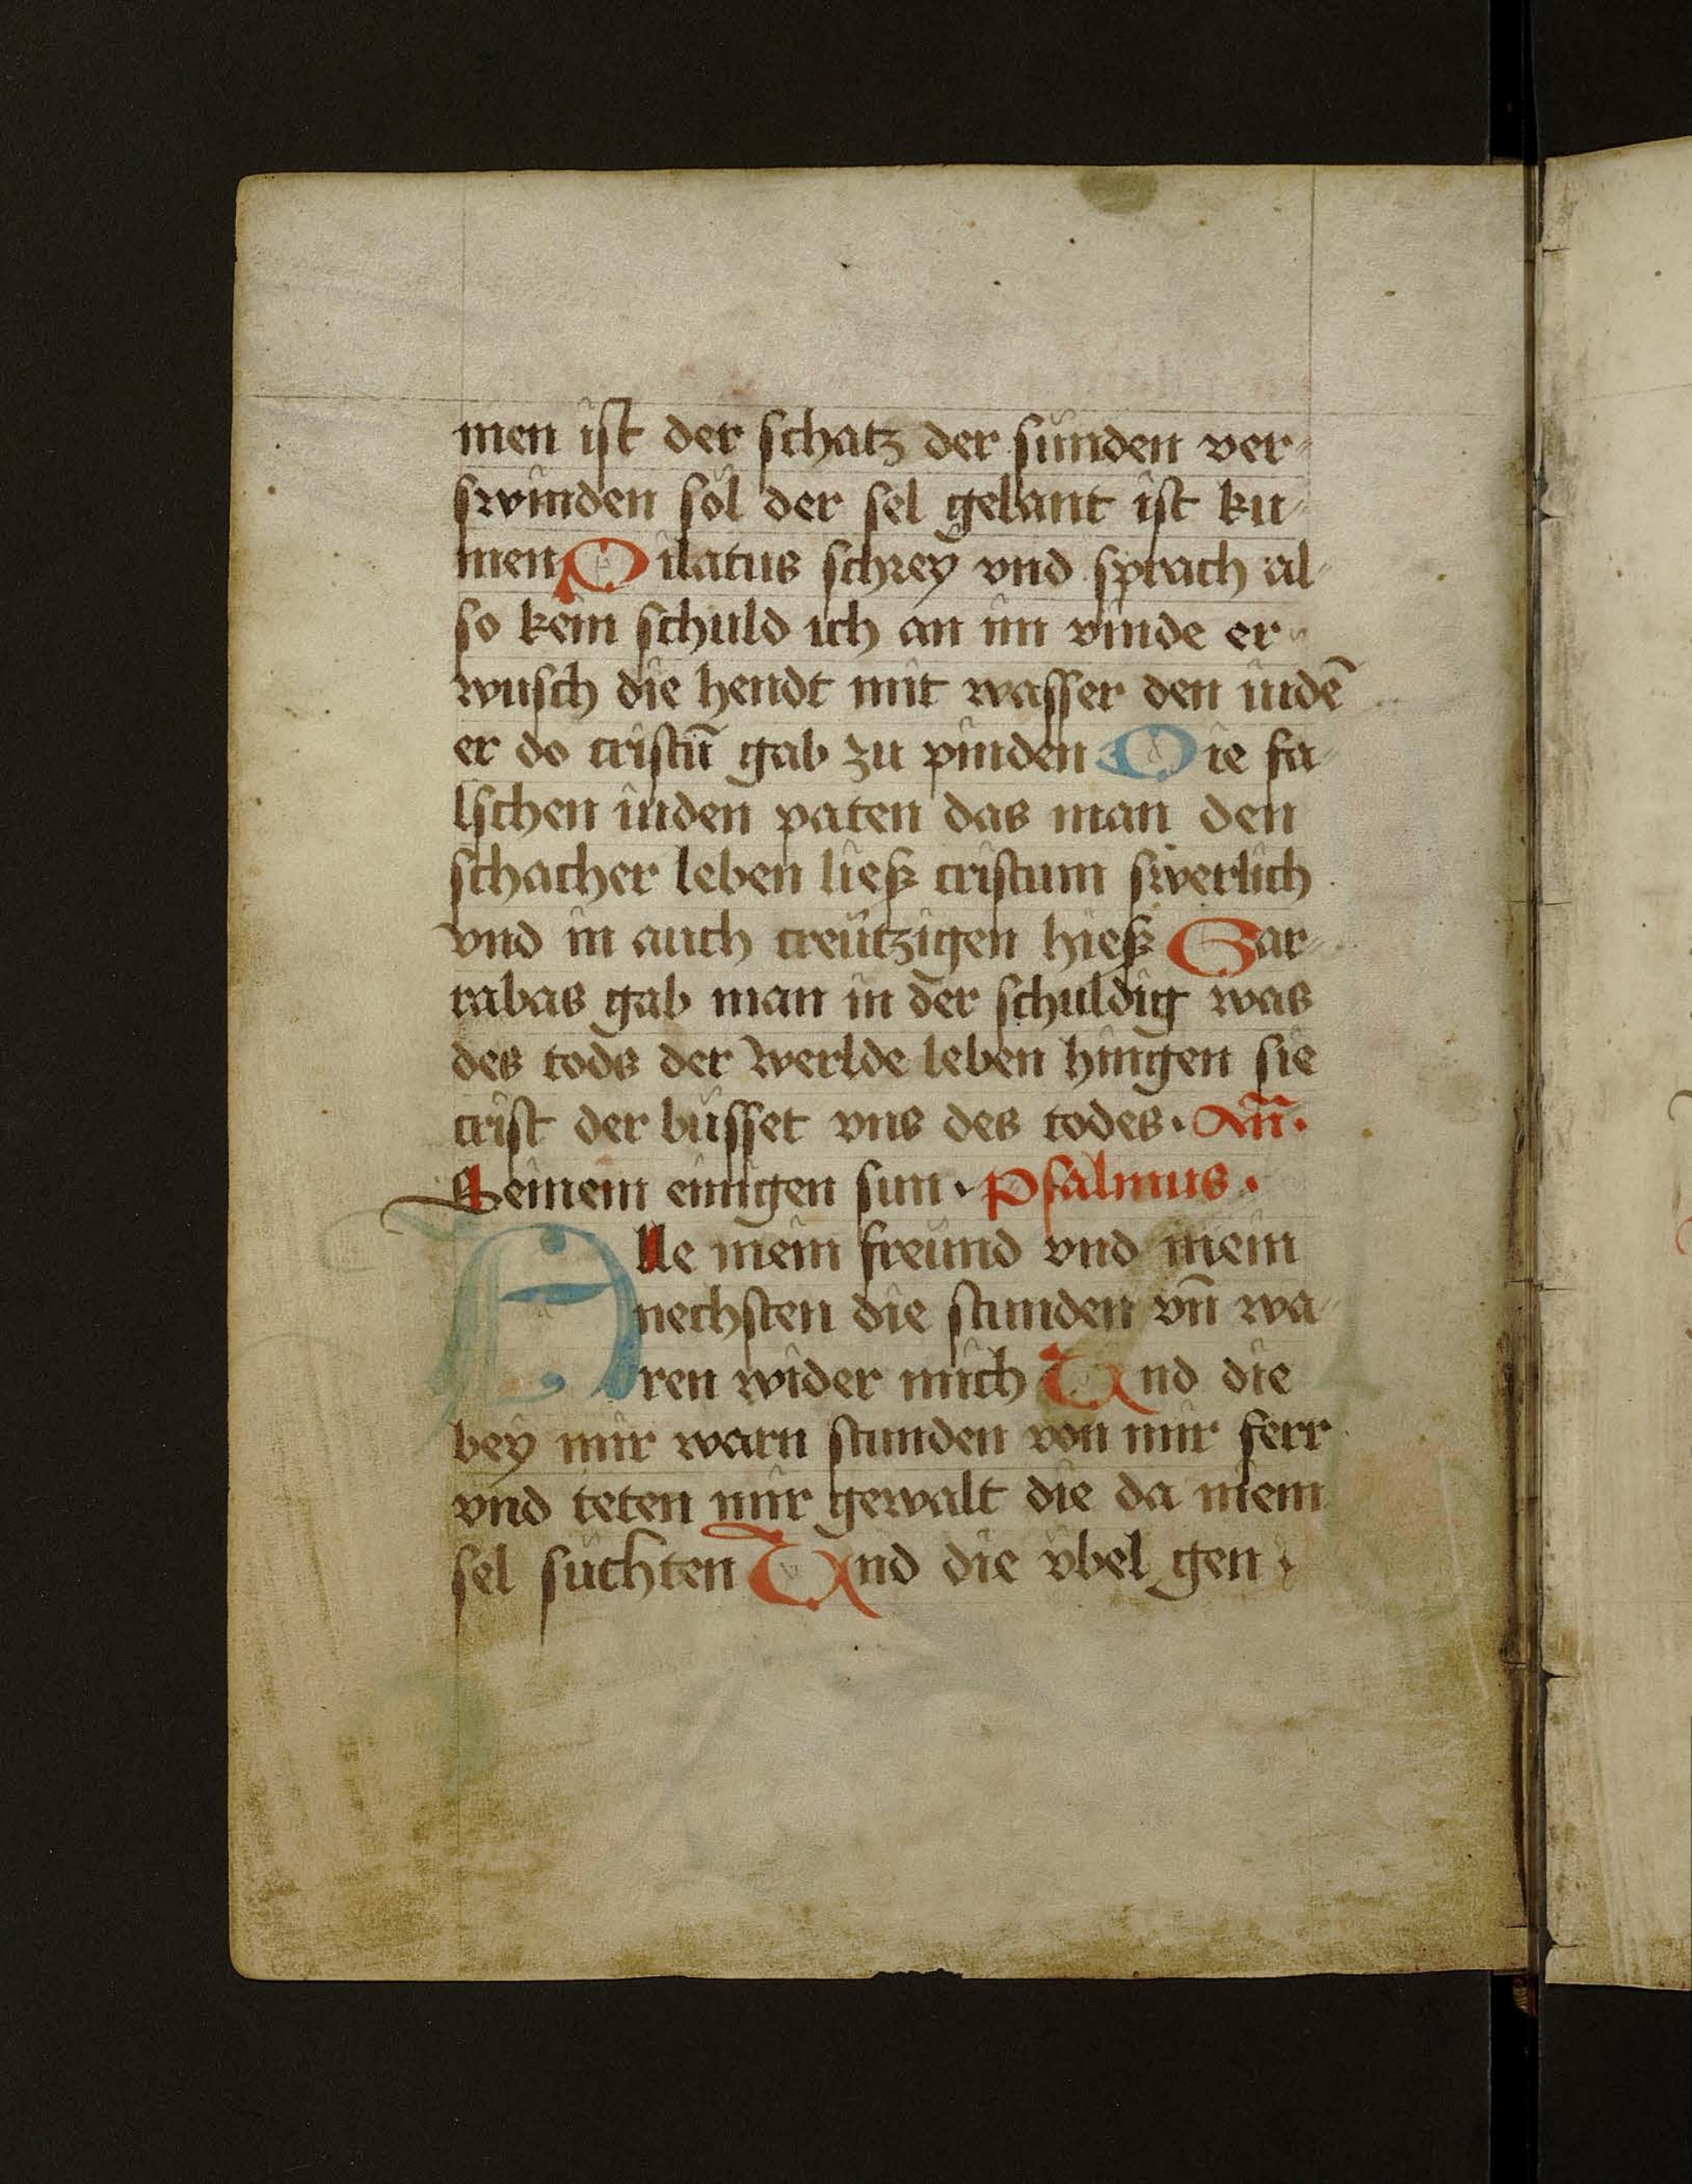 men ist der schatz der sunden ver⸗
swinden sol der sel gelant ist ku⸗
men Pilatus schrey vnd sprach al⸗
so kein schuld ich an im vinde er
wusch die hendt mit wasser den iudē
er do cristū gab zu pinden Die fa⸗
lschen iuden paten das man den
schacher leben ließ cristum swerlich
vnd in auch creützigen hieß Bar⸗
rabas gab man in der schuldig was
des tods der werlde leben hingen sie
crist der büsset vns des todes · Añ ·
Seinem einigen sun · Psalmus ·
Alle mein freünd vnd mein
nechsten die stunden vn̄ wa⸗
ren wider mich Und die
bey mir warn stunden von mir ferr
vnd teten mir gewalt die da mein
sel suchten Und die vbel gen